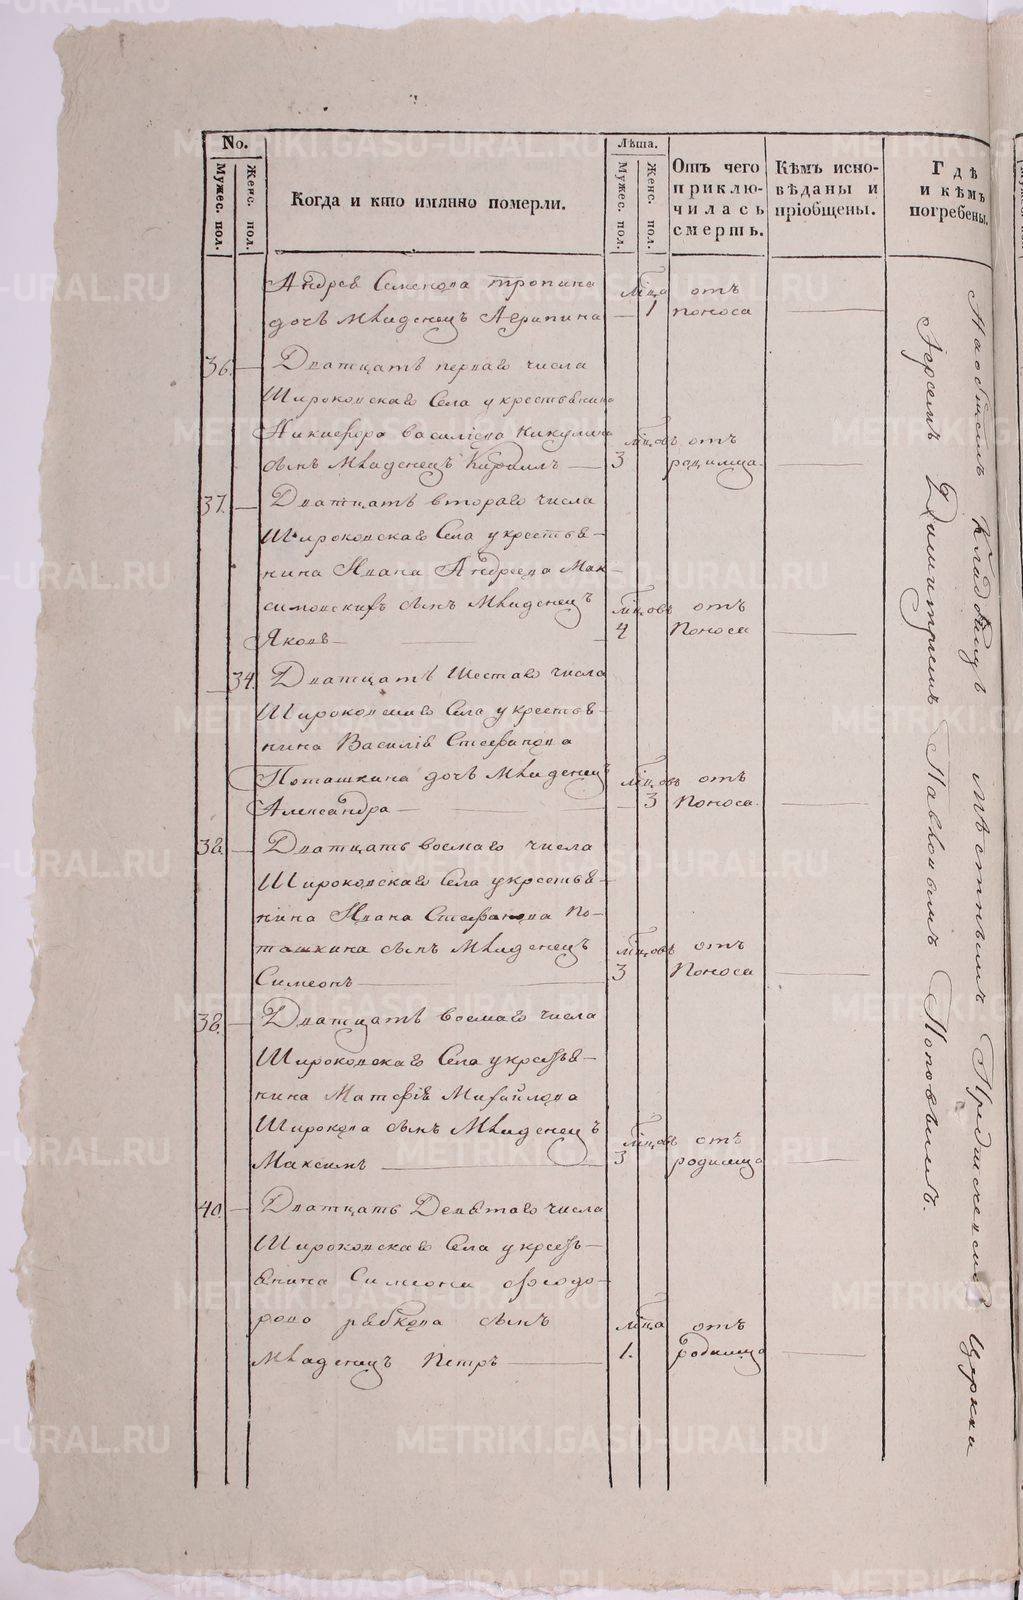 No.
Мужес. пол.
Женс. пол.
Когда и кто имянно померли.
Лѣта.
Мужес. пол.
Женс. пол.
Отъ чего
приклю-
чилась
смерть.
Кѣмъ испо-
вѣданы и
пріобщены.
Гдѣ
и кѣмъ
погребены.
Андрея Семенова Тропина
дочь младенецъ Агрипина
мѣца
1
отъ
поноса
36.
Дватцать перваго числа
Широковскаго Села у крестьянина
Никифора Василіева Никулина
сынъ Младенецъ Кирилъ
мѣцовъ
3
отъ
родимца
37.
Дватцать втораго числа
Широковскаго Села у крестья-
нина Ивана Андреева Мак-
симовскихъ сынъ Младенецъ
Яковъ
мѣцовъ
4
отъ
Поноса
34.
Дватцать Шестаго числа
Широковскаго Села у крестья-
нина Василія Стефанова
Поташкина дочь Младенецъ
Александра
мѣцовъ
3
отъ
Поноса
38.
Дватцать восмаго числа
Широковскаго Села у крестья-
нина Ивана Стефанова По-
ташкина сынъ Младенецъ
Симеонъ
мѣцовъ
3
отъ
Поноса
Дватцать восмаго числа
Широковскаго Села у кресть-
нина Матфія Михайлова
Широкова сынъ Младенецъ
Максимъ
мѣцовъ
3
отъ
родимца
40.
Дватцать Девятаго числа
Широковскаго Села у кресть-
янина Симеона Феодо-
рова Рябкова сынъ
Младенецъ Петръ
мѣца
1.
отъ
Родимца
На общемъ Кладбищѣ Мѣстнымъ Предтеческой Церкви
Іереемъ Димитріемъ Поповымъ.
METRIKI.GASO-URAL.RU